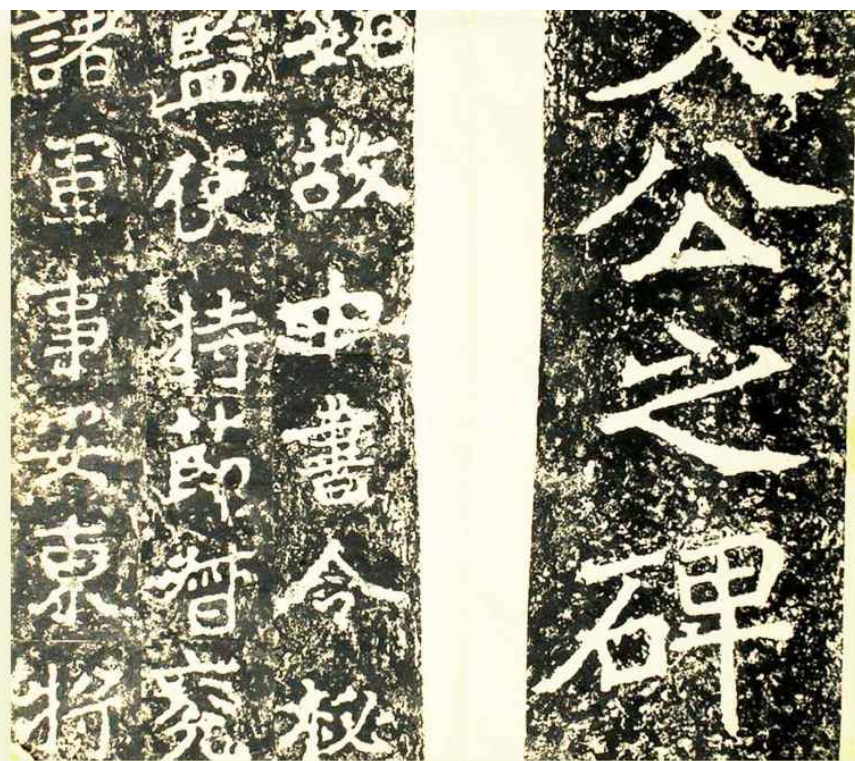 文公之碑
魏故中書令秘
監使持節督兗
諸軍事安東將